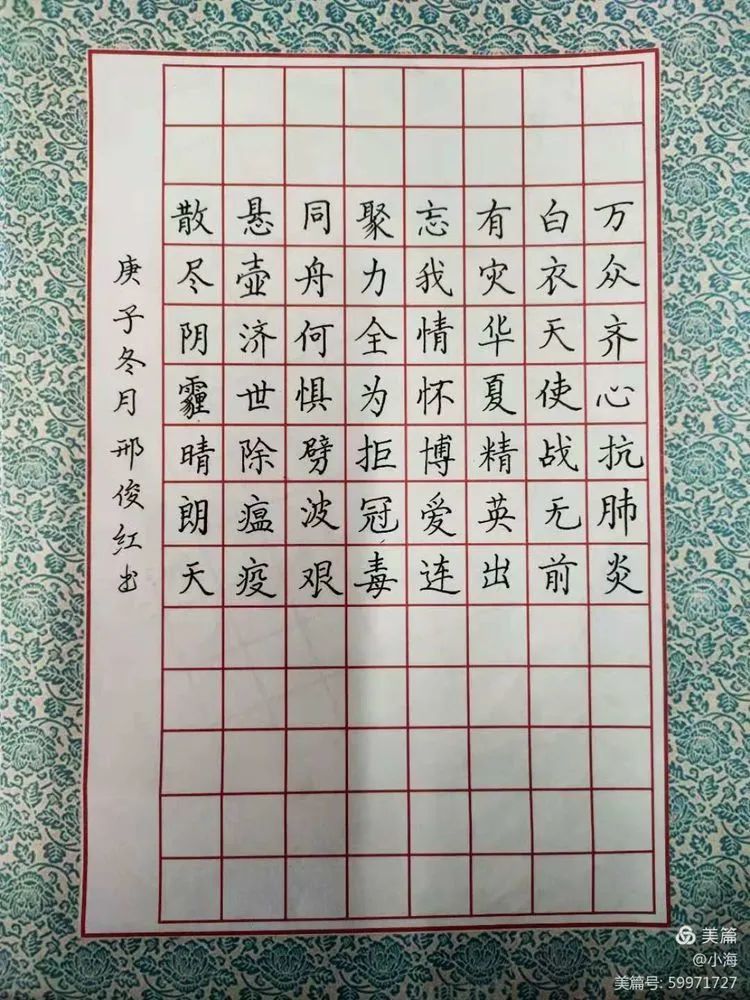 万众齐心抗肺炎
白衣天使战无前
有灾华夏精英出
忘我情怀博爱连
聚力全为拒冠毒
同舟何惧劈波艰
悬壶济世除瘟疫
散尽阴霾晴朗天
庚子冬月邢俊红书
美篇
@小海
美篇号: 59971727